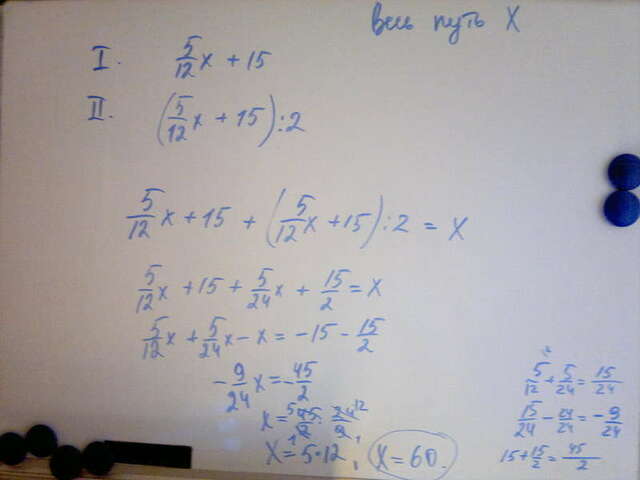 весь путь X
I. 5/12 x + 15
II. (5/12 x + 15) : 2
5/12 x + 15 + (5/12 x + 15) : 2 = X
5/12 x + 15 + 5/24 x + 15/2 = X
5/12 x + 5/24 x - x = -15 - 15/2
- 9/24 x = - 45/2
x = 45/2 : 24/9
X = 5·12, X = 60.
5/12 + 5/24 = 15/24
15/24 - 24/24 = - 9/24
15 + 15/2 = 45/2